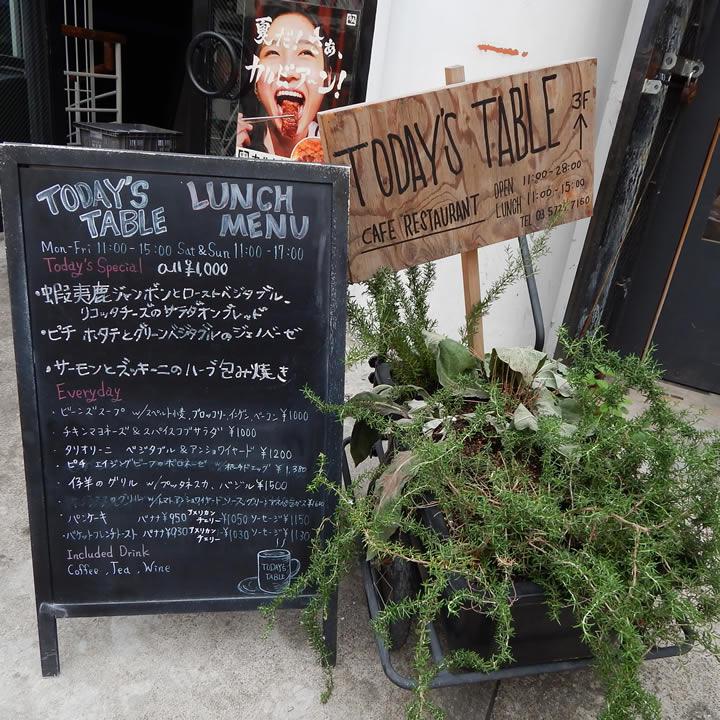 夏だ!さぁ、
カルビアーン!
TODAY'S TABLE
3F
CAFE RESTAURANT
OPEN 11:00-23:00
LUNCH 11:00-15:00
TEL 03 5722 7160
TODAY'S TABLE
LUNCH MENU
Mon-Fri 11:00-15:00 Sat & Sun 11:00-17:00
Today's Special all ¥1,000
・蝦夷鹿ジャンボンとローストベジタブル、
リコッタチーズのサラダオンブレッド
・ピチ ホタテとグリーンベジタブルのジェノベーゼ
・サーモンとズッキーニのハーブ包み焼き
Everyday
・ビーンズスープ w/スペルト小麦、ブロッコリ、インゲン、ベーコン ¥1000
・チキンマヨネーズ&スパイスコブサラダ ¥1000
・タリオリーニ ベジタブル&アンショワイヤード ¥1200
・ピチ エイジングビーフのボロネーゼ w/ポーチドエッグ ¥1,380
・仔羊のグリル w/プッタネスカ、バジル ¥1500
のグリル w/トマトアンショワイヤードソース、グリーン
・パンケーキ バナナ ¥950 アメリカンチェリー ¥1050 ソーセージ ¥1150
・バゲットフレンチトースト バナナ ¥930 アメリカンチェリー ¥1030 ソーセージ ¥1130
Included Drink
Coffee, Tea, Wine
TODAY'S TABLE